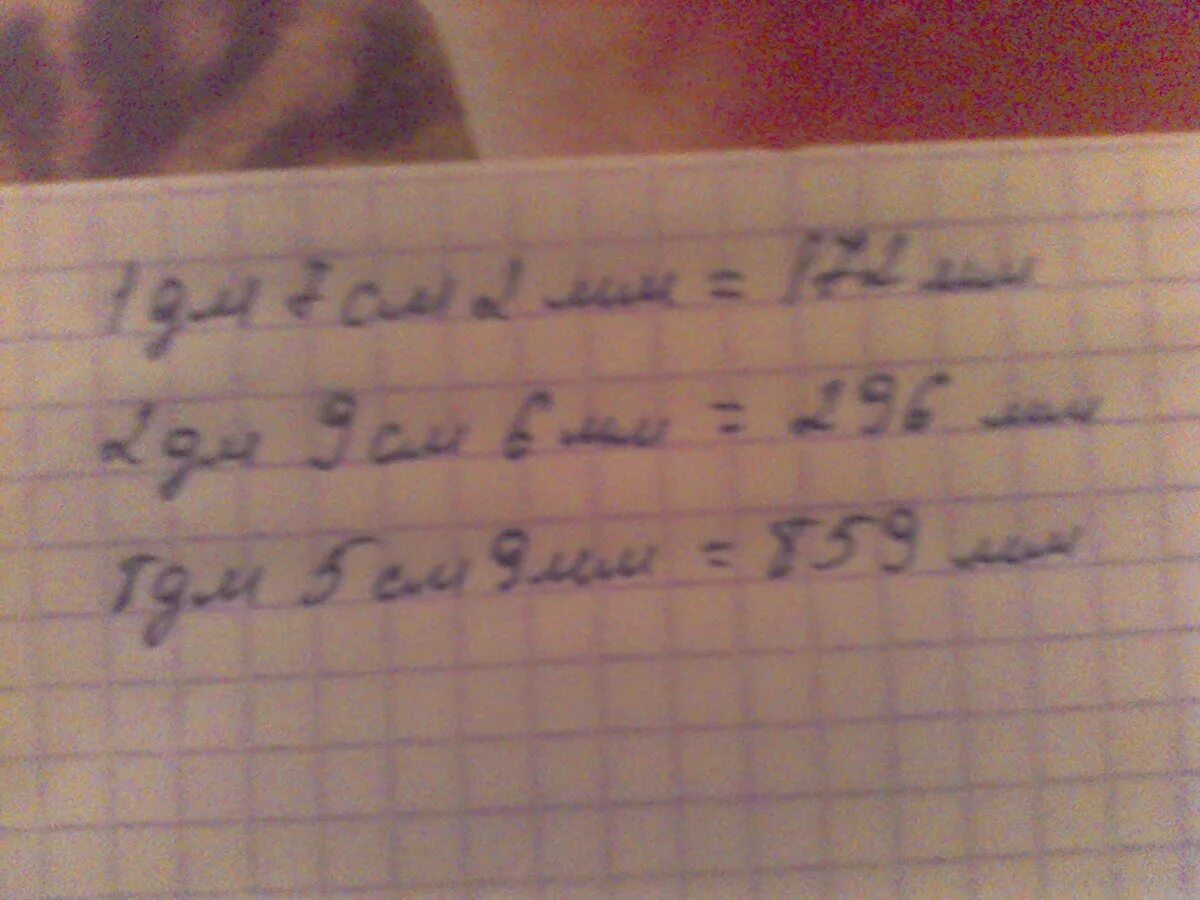 1 дм 7 см 2 мм = 172 мм
2 дм 9 см 6 мм = 296 мм
8 дм 5 см 9 мм = 859 мм